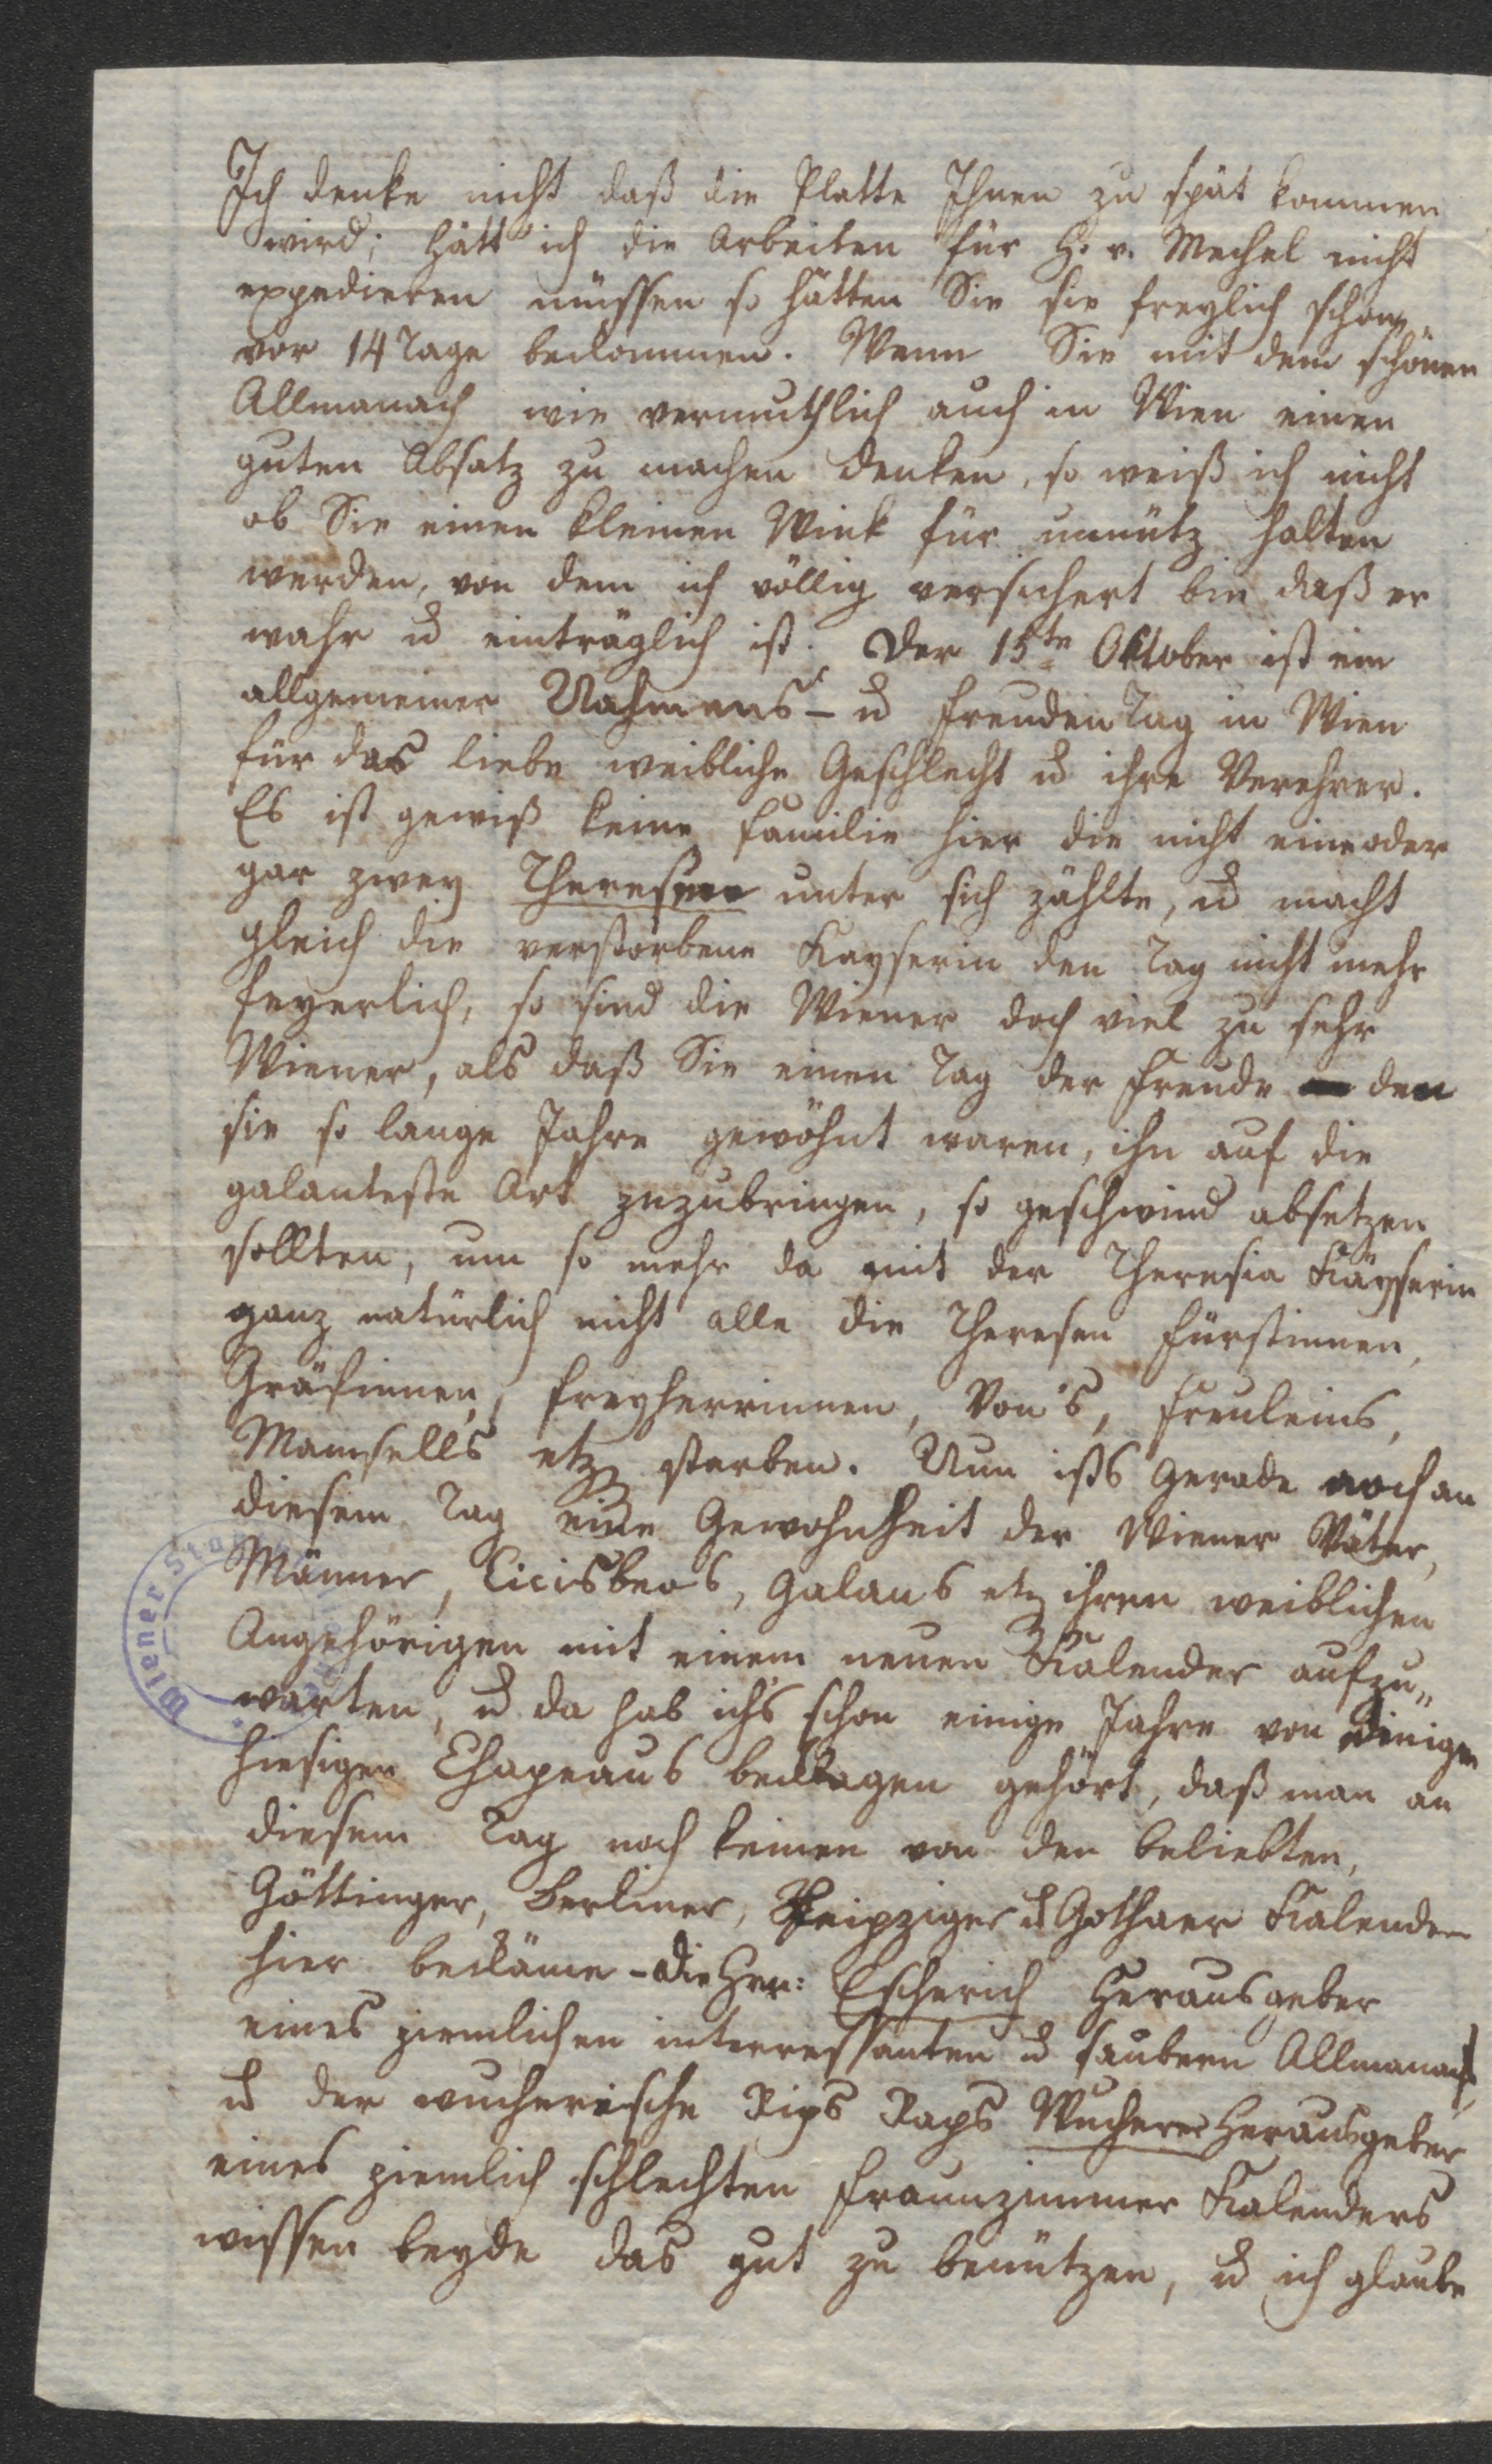 Ich denke nicht daß die Platte Ihnen zu spät kommen
wird; hätt' ich die Arbeiten für H. v. Mechel nicht
expedieren müssen so hätten Sie sie freylich schon
vor 14 Tage bekommen. Wenn Sie mit dem schönen
Allmanach wie vermuthlich auch in Wien einen
guten Absatz zu machen denken, so weiß ich nicht
ob Sie einen kleinen Wink für unnütz halten
werden, von dem ich völlig versichert bin daß er
wahr u einträglich ist. Der 15te Oktober ist ein
allgemeiner Nahmens- u FreudenTag in Wien
für das liebe weibliche Geschlecht u ihre Verehrer.
Es ist gewiß keine Familie hier die nicht eine oder
gar zwey Theresen unter sich zählte, u macht
gleich die verstorbene Kayserin den Tag nicht mehr
feyerlich, so sind die Wiener doch viel zu sehr
Wiener, als daß Sie einen Tag der Freude den
sie so lange Jahre gewöhnt waren, ihn auf die
galanteste Art zuzubringen, so geschwind absetzen
sollten, um so mehr da mit der Theresia Kayserin
ganz natürlich nicht alle die Theresen Fürstinnen,
Gräfinnen, Freyherrinnen, Von's, Freuleins,
Mamsells etz starben. Nun ists gerade noch an
diesem Tag eine Gewohnheit der Wiener Väter,
Männer, Cicisbeos, Galans etz ihren weiblichen
Angehörigen mit einem neuen Kalender aufzu„
warten, u da hab ich's schon einige Jahre von einigen
hiesigen Chapeaus beklagen gehört, daß man an
diesem Tag noch keinen von den beliebten,
Göttinger, Berliner, Leipziger u Gothaer Kalender
hier bekäme - Die Hrr: Escherich Herausgeber
eines ziemlichen interressanten u saubern Allmanach,
u der wucherische Rips Raps Wucherer Herausgeber
eines ziemlich schlechten Frauenzimmer Kalenders
wissen beyde das gut zu benützen, u ich glaube
Wiener